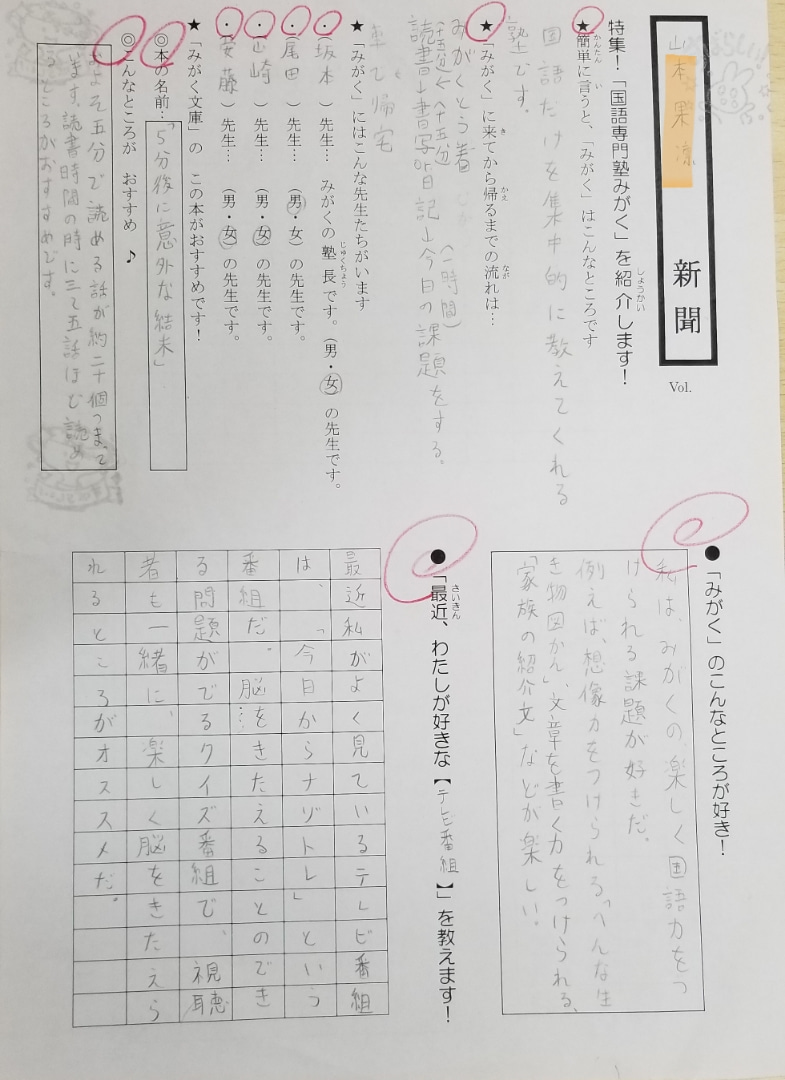 山本 果凉 新聞
Vol.
特集！「国語専門塾みがく」を紹介します！
★簡単に言うと、「みがく」はこんなところです
国語だけを集中的に教えてくれる
塾です。
★「みがく」に来てから帰るまでの流れは…
みがくとう着
読書→書写or日記→今日の課題をする。
(一時間)
帰宅
★「みがく」にはこんな先生たちがいます
・（坂本）先生… みがくの塾長です。（男・女）の先生です。
・（尾田）先生… （男・女）の先生です。
・（山崎）先生… （男・女）の先生です。
・（安藤）先生… （男・女）の先生です。
★「みがく文庫」の この本がおすすめです！
◎本の名前…「5分後に意外な結末」
◎こんなところが おすすめ♪
およそ五分で読める話が約二十個つまって
います。読書時間の時に三〜五話ほど読め
るところがおすすめです。
●「みがく」のこんなところが好き！
私は、みがくの楽しく国語力をつ
けられる課題が好きだ。
例えば、想像力をつけられる「へんな生
き物図かん」、文章を書く力をつけられる、
「家族の紹介文」などが楽しい。
●「最近、わたしが好きな【テレビ番組】」を教えます！
最近私がよく見ているテレビ番組
は、「今日からナゾトレ」という
番組だ。脳をきたえることのでき
る問題がでるクイズ番組で、視聴
者も一緒に、楽しく脳をきたえら
れるところがオススメだ。